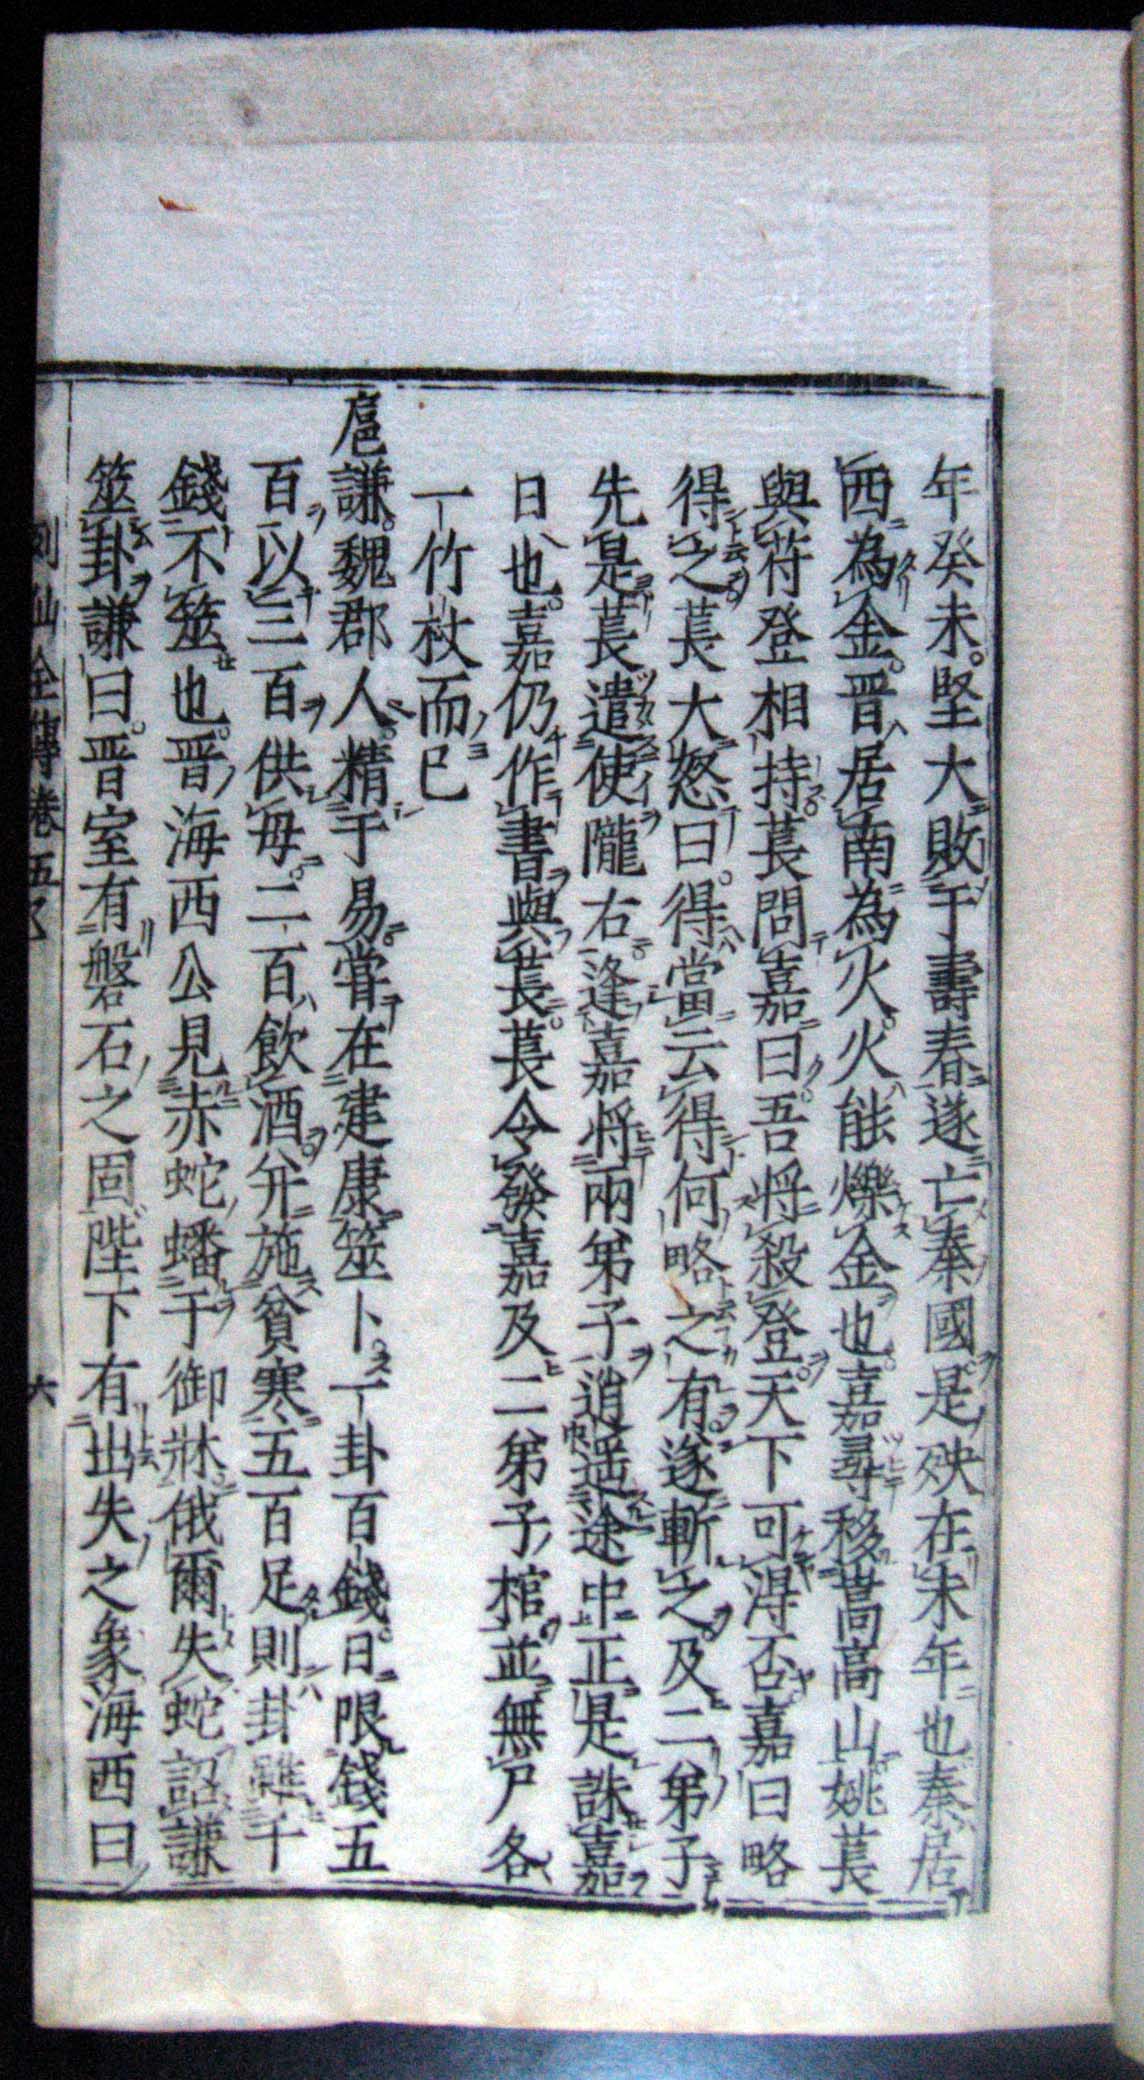 年癸未。堅大敗于壽春遂亡秦國。是殃在未年也秦居
西為金。晋居南為火。火能爍金也。嘉尋移嵩高山姚萇
與苻登相持萇問嘉曰。吾將殺登。天下可得否嘉曰略
得之萇大怒曰。得當云得何略之有。遂斬之及二弟子
先是萇遣使隴右逢嘉將兩弟子逍遥途中正是誅嘉
日也。嘉仍作書與萇萇令發嘉及二弟子棺並無尸各
一竹杖而已
扈謙。魏郡人精于易嘗在建康筮卜。一卦百錢。日限錢五
百以三百供母。二百飲酒并施貧寒五百足則卦雖千
錢不筮也。晋海西公見赤蛇蟠于御牀俄爾失蛇詔謙
筮卦謙曰。晋室有磐石之固陛下有出失之象海西曰
列仙全傳卷五 六